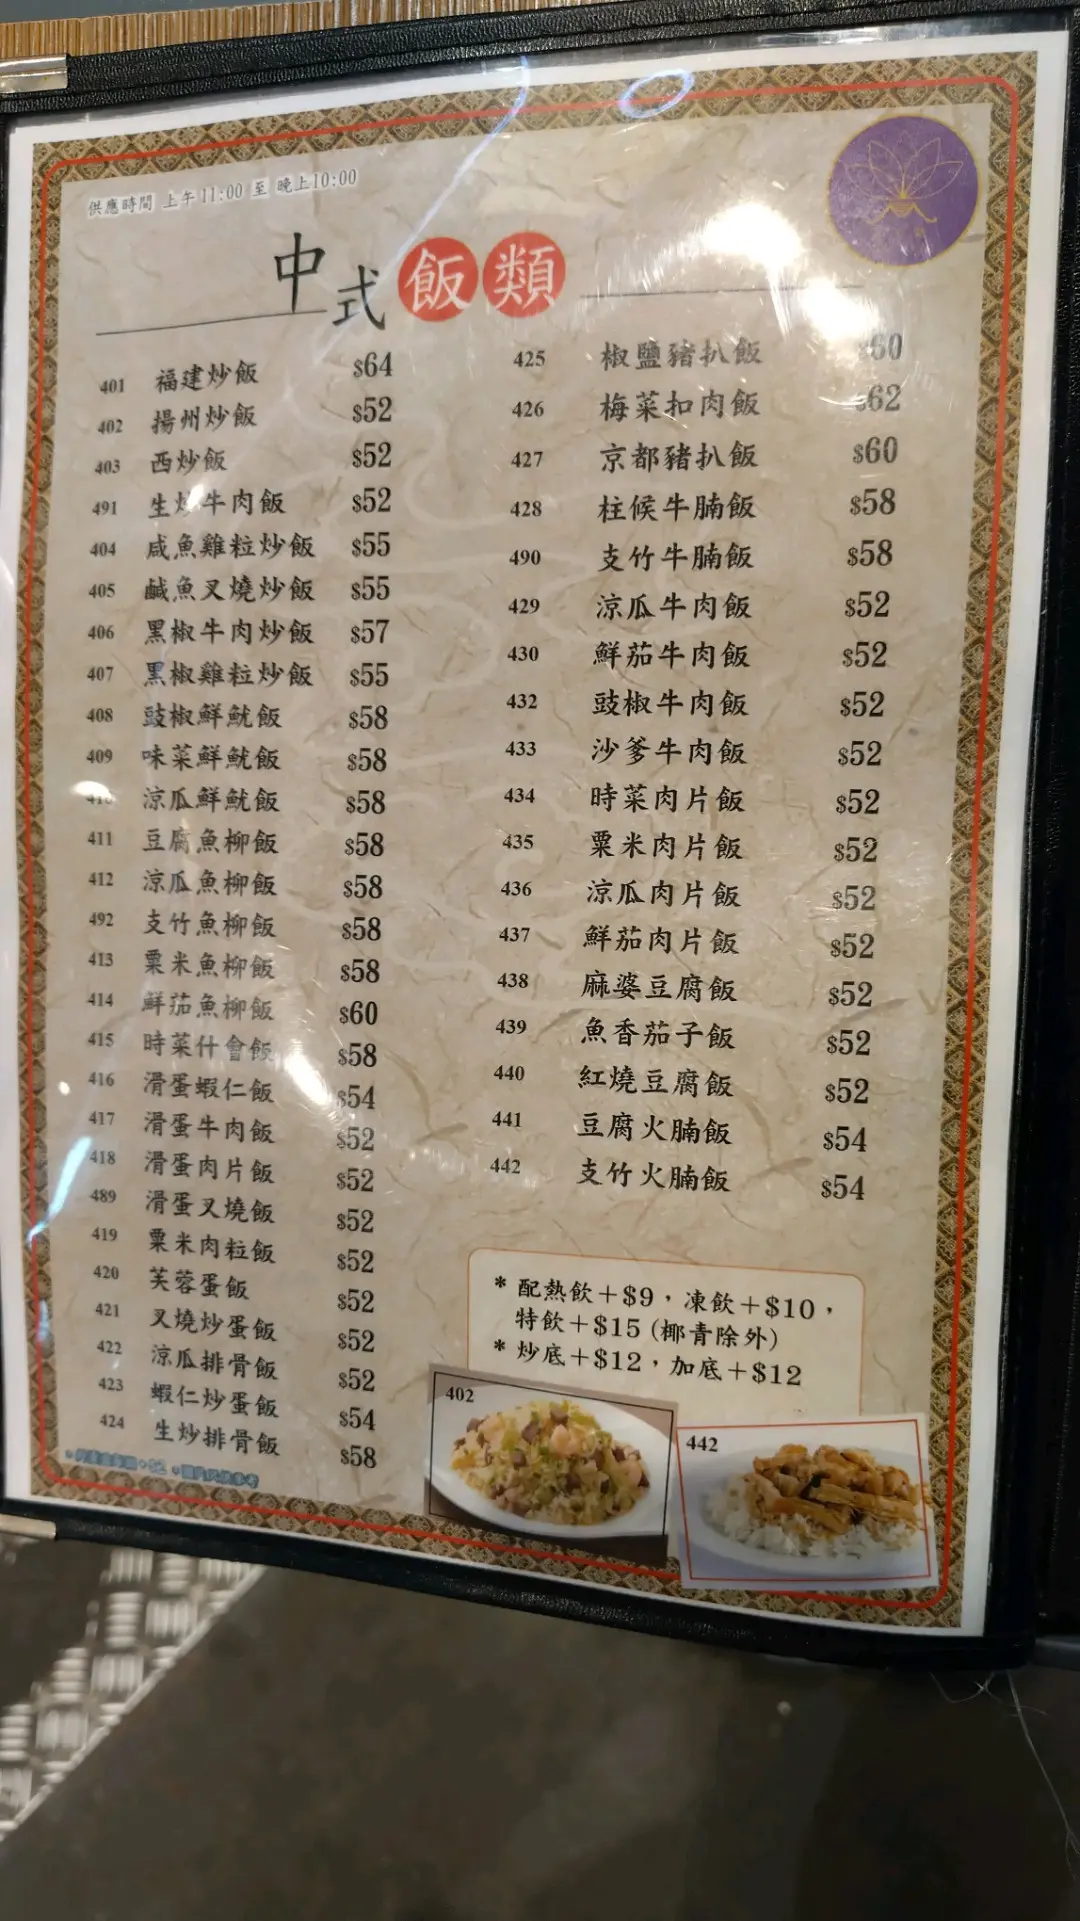 供應時間 上午11:00 至 晚上10:00
中式飯類
401 福建炒飯 $64
402 揚州炒飯 $52
403 西炒飯 $52
491 生炒牛肉飯 $52
404 咸魚雞粒炒飯 $55
405 鹹魚叉燒炒飯 $55
406 黑椒牛肉炒飯 $57
407 黑椒雞粒炒飯 $55
408 豉椒鮮魷飯 $58
409 味菜鮮魷飯 $58
410 涼瓜鮮魷飯 $58
411 豆腐魚柳飯 $58
412 涼瓜魚柳飯 $58
492 支竹魚柳飯 $58
413 粟米魚柳飯 $58
414 鮮茄魚柳飯 $60
415 時菜什會飯 $58
416 滑蛋蝦仁飯 $54
417 滑蛋牛肉飯 $52
418 滑蛋肉片飯 $52
489 滑蛋叉燒飯 $52
419 粟米肉粒飯 $52
420 芙蓉蛋飯 $52
421 叉燒炒蛋飯 $52
422 涼瓜排骨飯 $52
423 蝦仁炒蛋飯 $54
424 生炒排骨飯 $58
425 椒鹽豬扒飯 $60
426 梅菜扣肉飯 $62
427 京都豬扒飯 $60
428 柱候牛腩飯 $58
490 支竹牛腩飯 $58
429 涼瓜牛肉飯 $52
430 鮮茄牛肉飯 $52
432 豉椒牛肉飯 $52
433 沙爹牛肉飯 $52
434 時菜肉片飯 $52
435 粟米肉片飯 $52
436 涼瓜肉片飯 $52
437 鮮茄肉片飯 $52
438 麻婆豆腐飯 $52
439 魚香茄子飯 $52
440 紅燒豆腐飯 $52
441 豆腐火腩飯 $54
442 支竹火腩飯 $54
* 配熱飲＋$9，凍飲＋$10，
特飲＋$15 (椰青除外)
* 炒底＋$12，加底＋$12
402
442